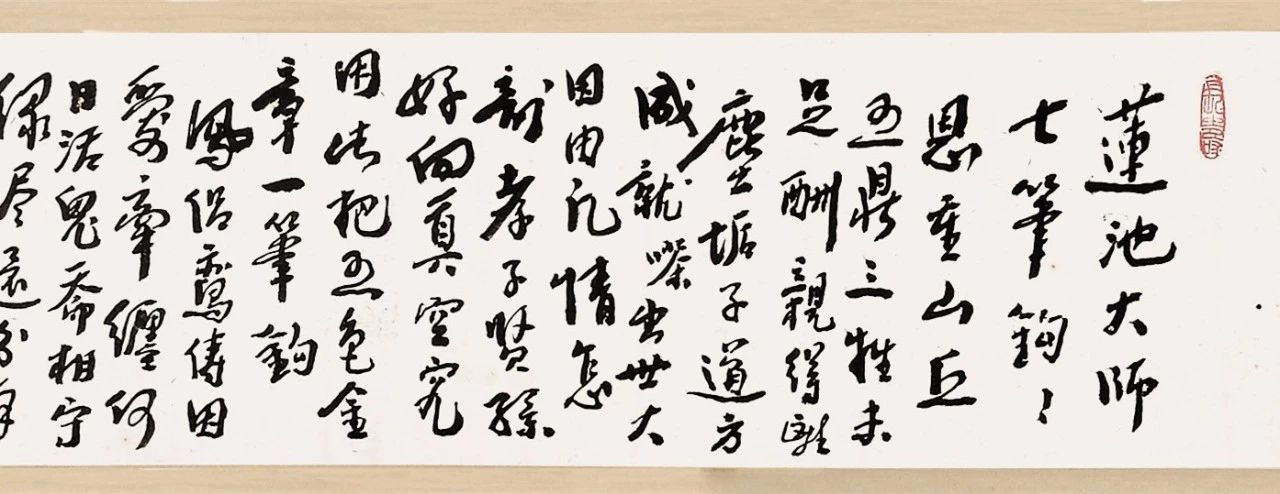 蓮池大师
七筆鉤〻
恩重山丘
五鼎三牲未
足酬親得離
塵垢子道方
成就嗏出世大
因由凡情怎
剖孝子賢孫
好向真空究
用此把五色金
章一筆鉤
鳳侣鸞儔因
愛牽纏何
日活鬼喬相守
緣尽還分